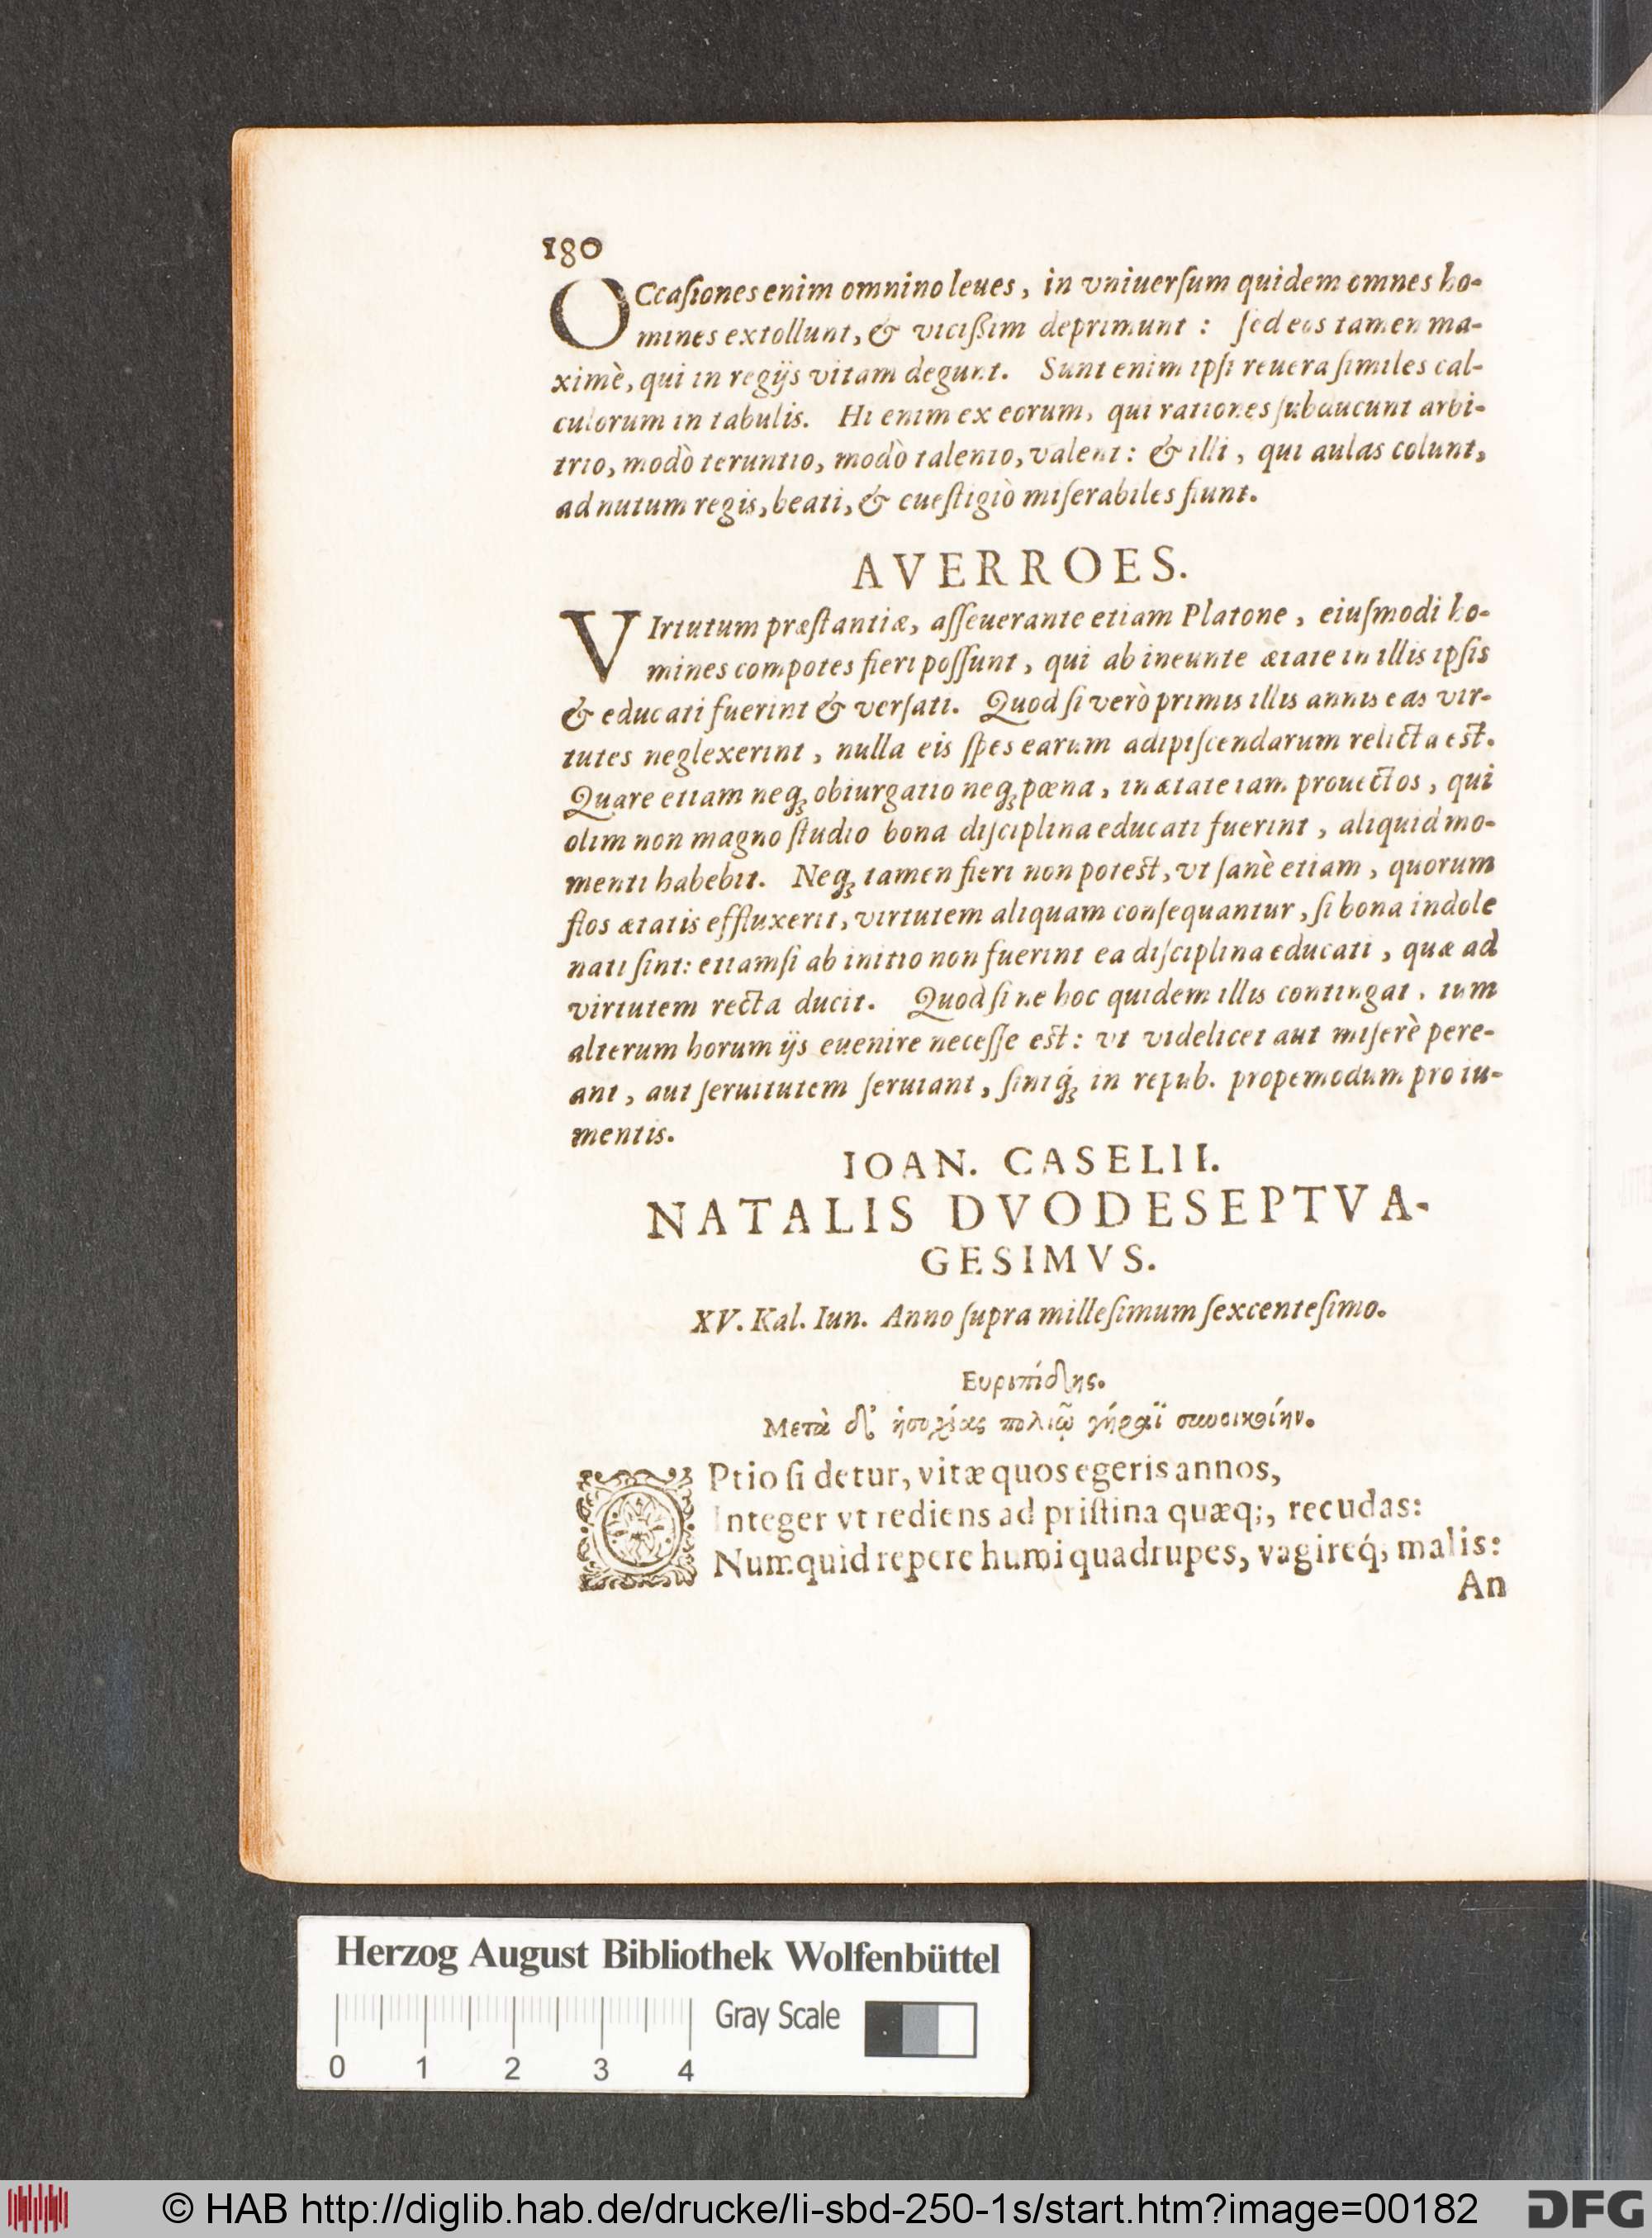 180
OCcasiones enim omnino leues, in vniuersum quidem omnes ho-
mines extollunt, & vicißim deprimunt : sed eos tamen ma-
ximè, qui in regijs vitam degunt. Sunt enim ipsi reuera similes cal-
culorum in tabulis. Hi enim ex eorum, qui rationes subducunt arbi-
trio, modò teruntio, modò talento, valent: & illi, qui aulas colunt,
ad nutum regis, beati, & euestigiò miserabiles fiunt.
AVERROES.
VIrtutum præstantiæ, asseuerante etiam Platone, eiusmodi ho-
mines compotes fieri possunt, qui ab ineunte ætate in illis ipsis
& educati fuerint & versati. Quod si verò primis illis annis eas vir-
tutes neglexerint, nulla eis spes earum adipiscendarum relicta est.
Quare etiam neq; obiurgatio neq; pœna, in ætate iam prouectos, qui
olim non magno studio bona disciplina educati fuerint, aliquid mo-
menti habebit. Neq; tamen fieri non potest, vt sanè etiam, quorum
flos ætatis effluxerit, virtutem aliquam consequantur, si bona indole
nati sint: etiamsi ab initio non fuerint ea disciplina educati, quæ ad
virtutem recta ducit. Quod si ne hoc quidem illis contingat, tum
alterum horum ijs euenire necesse est: vt videlicet aut miserè pere-
ant, aut seruitutem seruiant, sintq́; in repub. propemodum pro iu-
mentis.
IOAN. CASELII.
NATALIS DVODESEPTVA-
GESIMVS.
XV. Kal. Iun. Anno supra millesimum sexcentesimo.
Ευριπίδης.
Μετὰ δ' ἡσυχίας πολιῷ γήραϊ συνοικοίην.
OPtio si detur, vitæ quos egeris annos,
Integer vt rediens ad pristina quæq;, recudas:
Numquid repere humi quadrupes, vagireq́; malis:
An
Herzog August Bibliothek Wolfenbüttel
Gray Scale
0 1 2 3 4
© HAB http://diglib.hab.de/drucke/li-sbd-250-1s/start.htm?image=00182
DFG